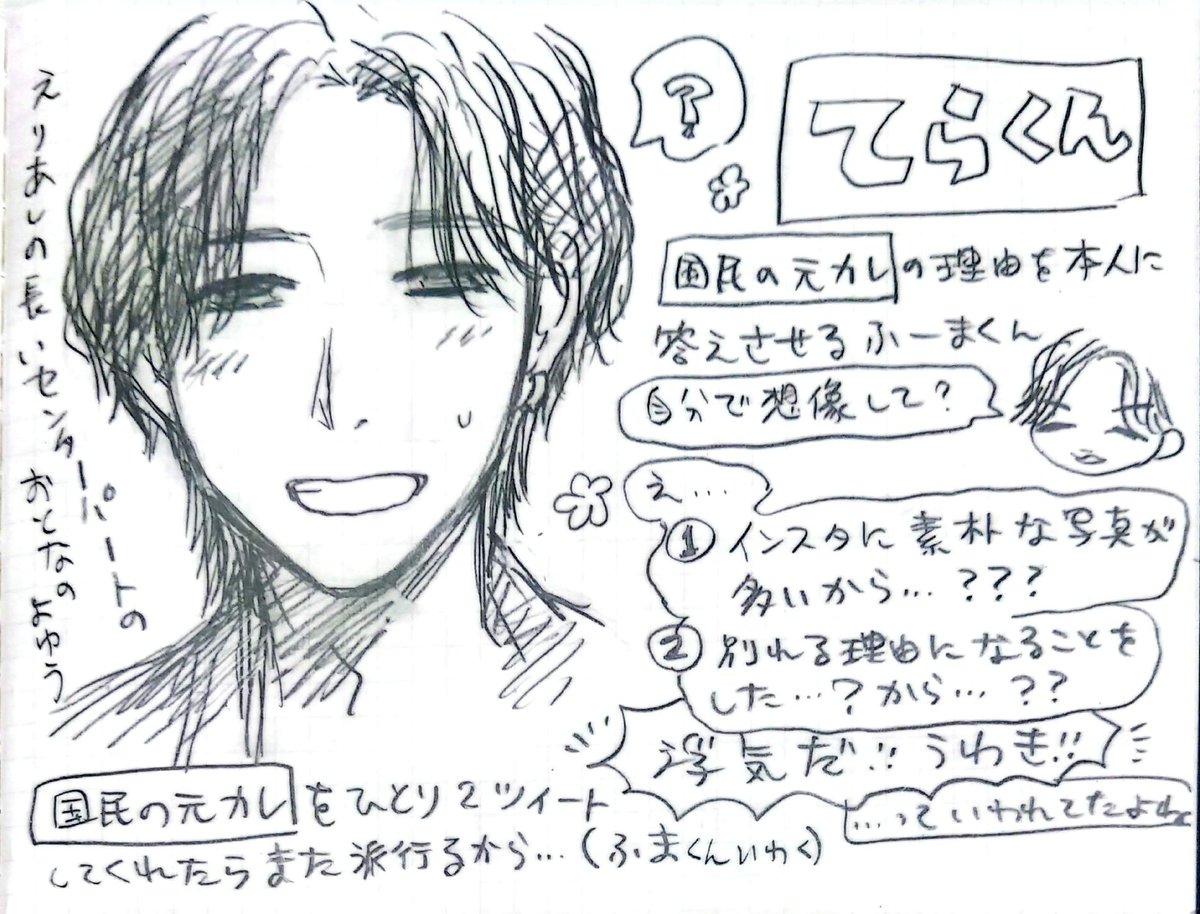 ?
てらくん
国民の元カレの理由を本人に
答えさせるふーまくん
自分で想像して?
え…
① インスタに素朴な写真が
多いから…???
② 別れる理由になることを
した…?から…??
浮気だ!!うわき!!
…っていわれてたよね
えりあしの長いセンターパートの
おとなのよゆう
国民の元カレをひとり2ツイート
してくれたらまた派行るから…(ふまくんいわく)